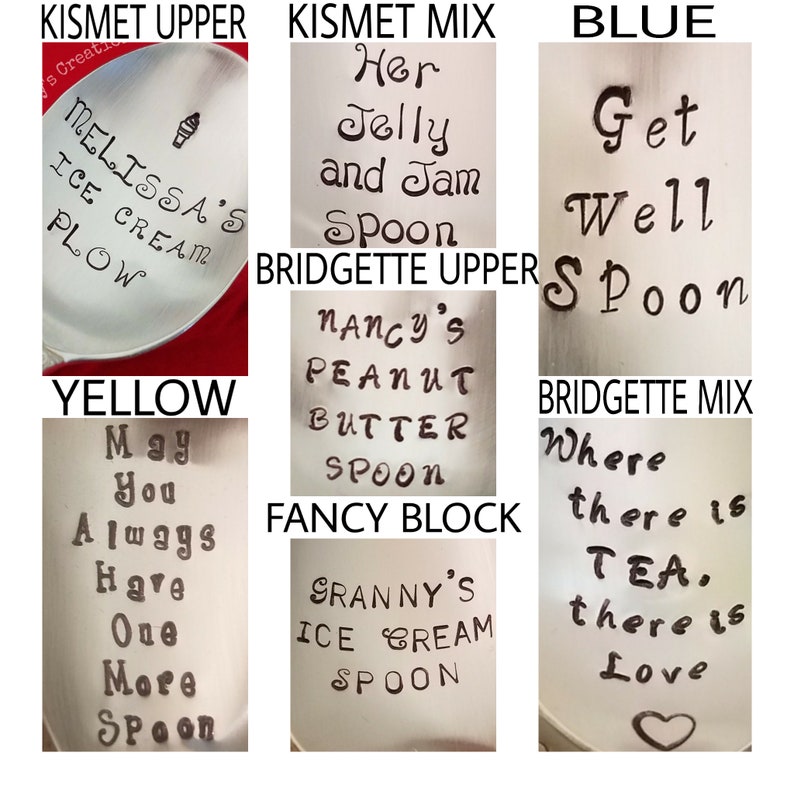 KISMET UPPER
MELISSA'S
ICE CREAM
PLOW
KISMET MIX
Her
Jelly
and Jam
Spoon
BLUE
Get
Well
Spoon
BRIDGETTE UPPER
NANCY'S
PEANUT
BUTTER
SPOON
YELLOW
May
You
Always
Have
One
More
Spoon
FANCY BLOCK
GRANNY'S
ICE CREAM
SPOON
BRIDGETTE MIX
Where
there is
TEA,
there is
Love